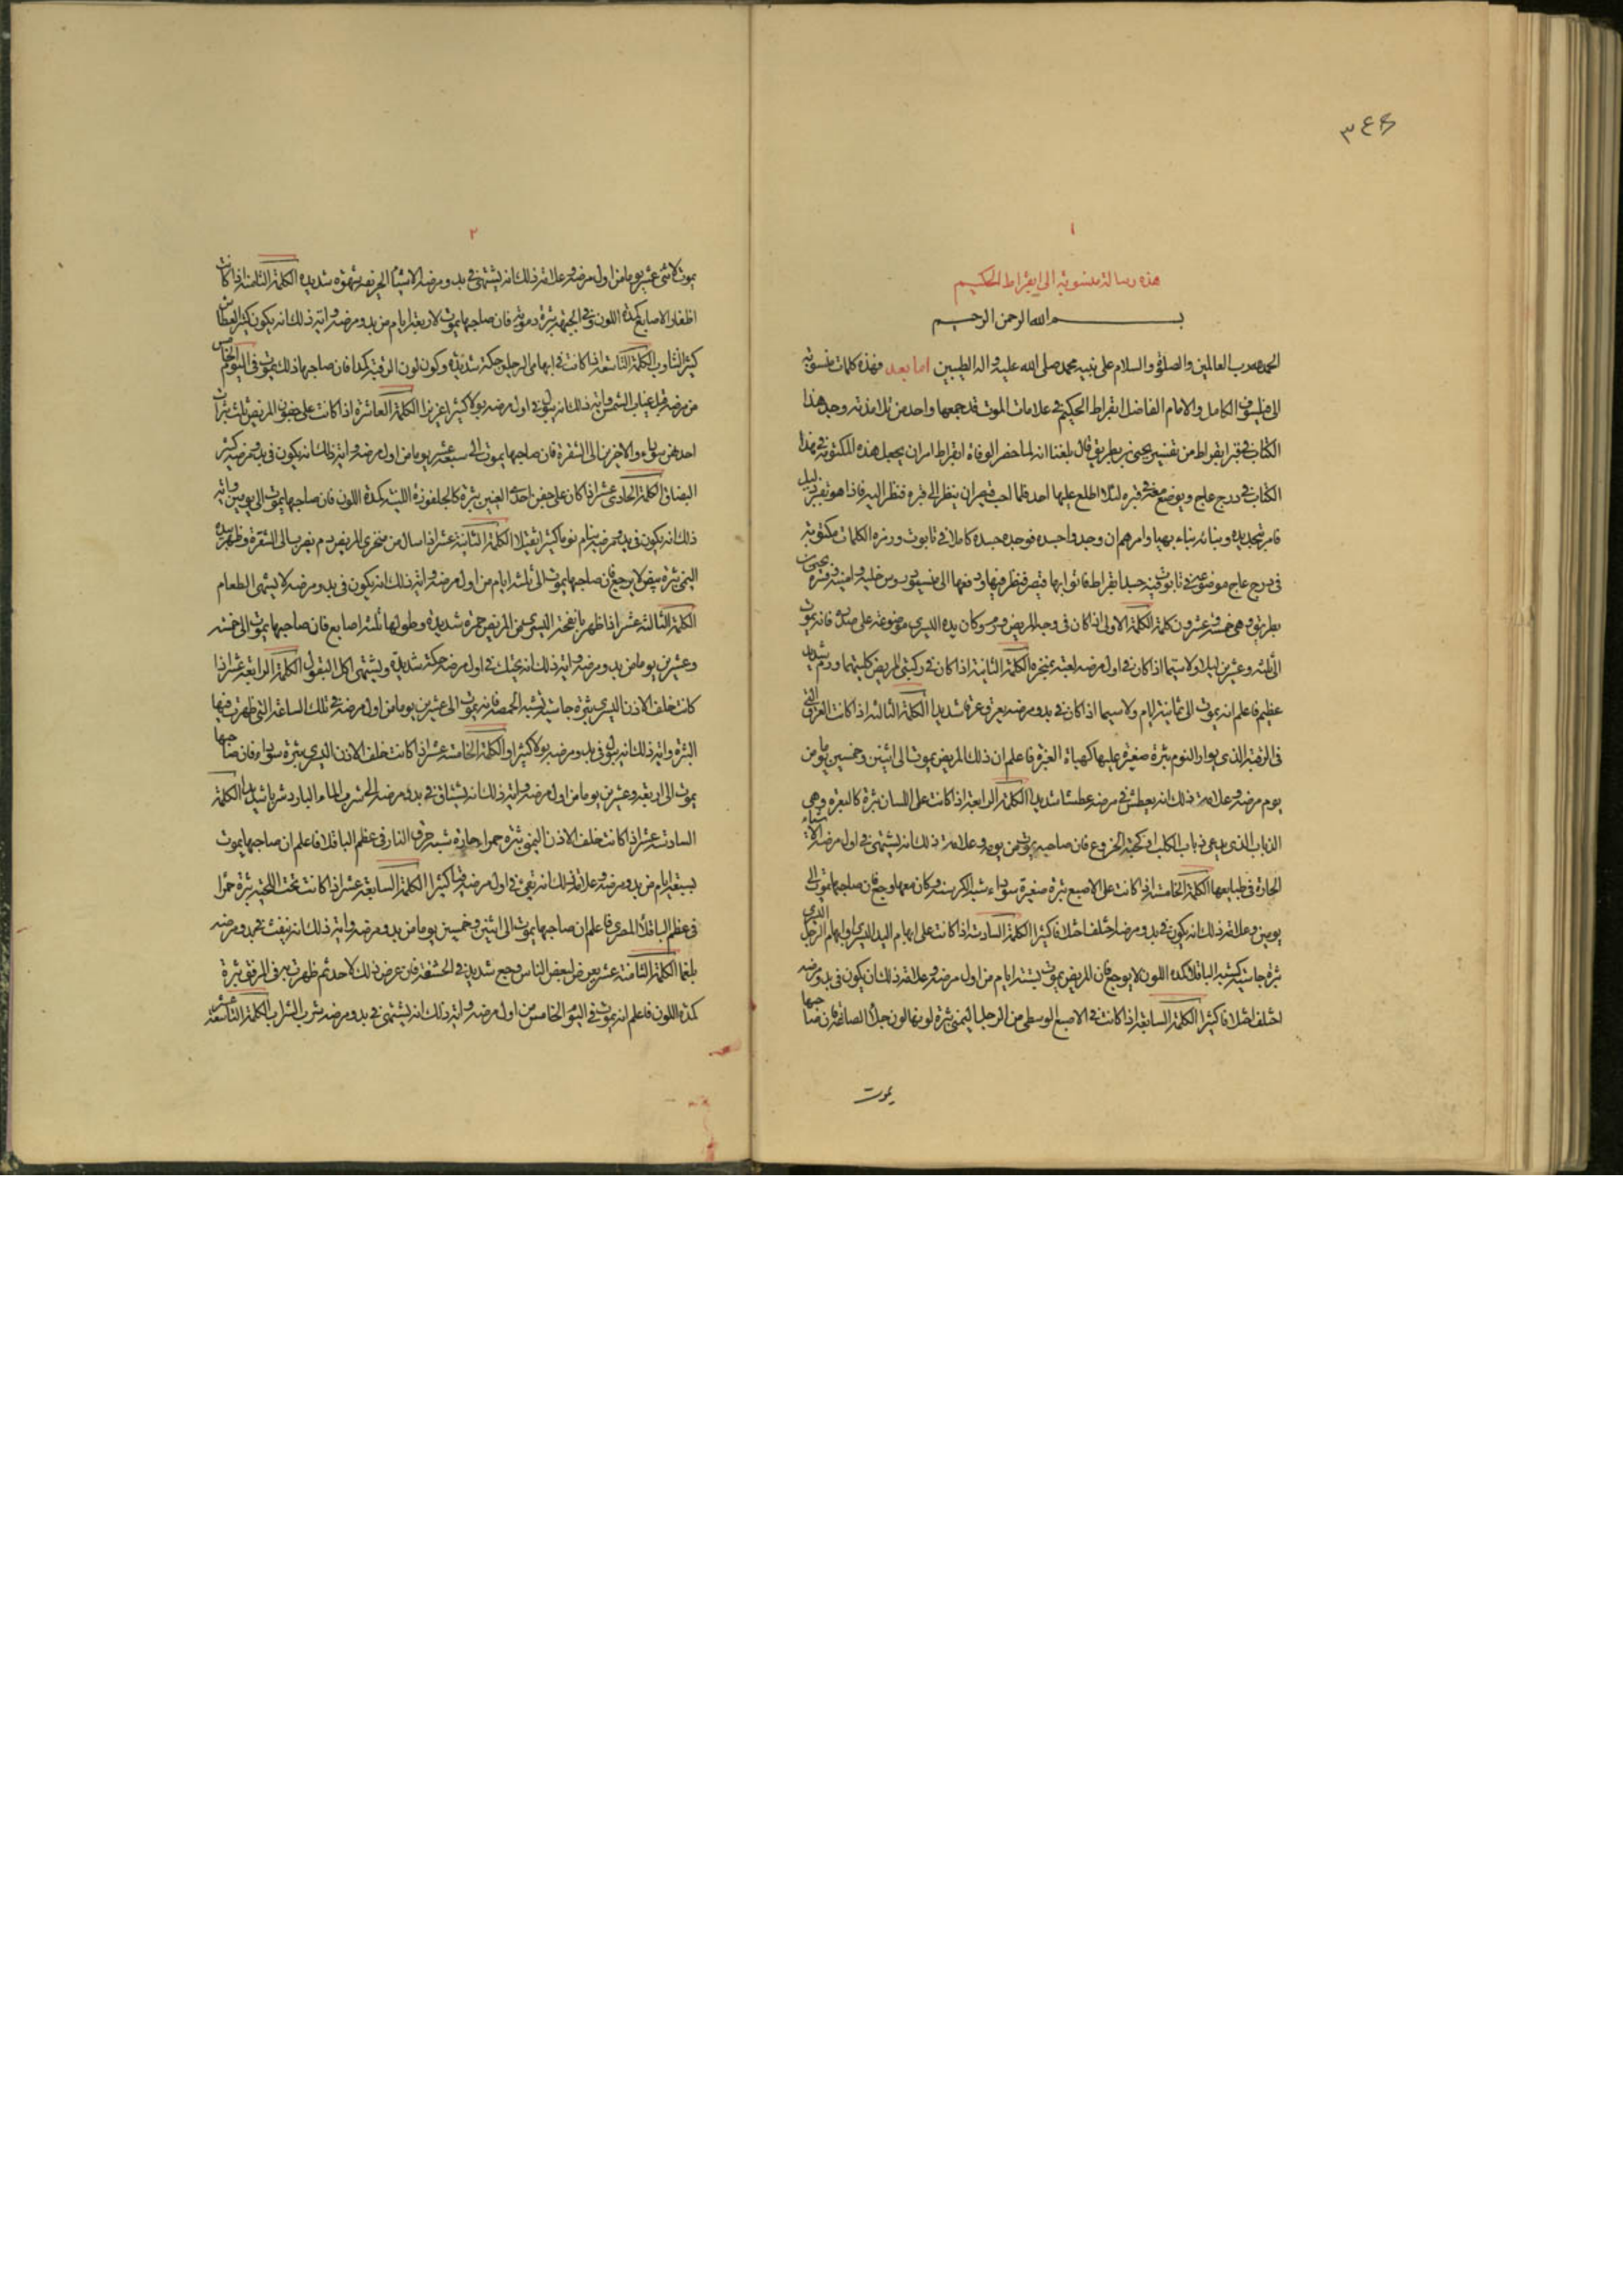 ١
هذه رسالة منسوبة الى ابقراط الحكيم
بسم الله الرحمن الرحيم
الحمد لله رب العالمين والصلوة والسلام على نبيه محمد صلى الله عليه واله الطيبين اما بعد فهذه كلمات منسوبة
الى فيلسوف الكامل والامام الفاضل ابقراط الحكيم في علامات الموت قد جمعها واحد من تلامذته وجد هذا
الكتاب في قبر ابقراط من تفسير يحيى بن بطريق قال بلغنا انه لما حضر الوفاة ابقراط امر ان يجعل هذه المكتوبة في هذا
الكتاب في درج عاج ويوضع معه في قبره لئلا اطلع عليها احد فلما احب قيصر ان ينظر الى قبره فنظر اليه فاذا هو بقبر ذليل
فامر بتجديده وبنائه بناء بهيا وامرهم ان وجدوا جسده فوجده جسده كاملا في تابوت وهذه الكلمات مكتوبة
في درج عاج موضوعة في تابوت فيه جسد ابقراط فاتوا بها قيصر فنظر فيها ودفعها الى
بطريق وهي خمسة وعشرون كلمة الكلمة الاولى اذا كان في وجه المريض ورم وكان يده اليسرى موضوعة على صدره فانه يموت
الى ثلثة وعشرين ليلة ولا سيما اذا كان في اول مرضه يعبث بمنخره الكلمة الثانية اذا كان في ركبتي المريض كلتيهما ورم شديد
عظيم فاعلم انه يموت الى ثمانية ايام ولا سيما اذا كان في بدو مرضه يعرق عرقا شديدا الكلمة الثالثة اذا كانت العرق التي
في الرقبة الذي يوار النوم بثرة صغيرة عليها كهيأة الغبرة فاعلم ان ذلك المريض يموت الى اثنين وخمسين يوما من
يوم مرضه وعلامة ذلك انه يعطش في مرضه عطشا شديدا الكلمة الرابعة اذا كانت على اللسان بثرة كالبعرة وهي
الذباب الذي يدعى ذباب الكلب او كحبة الخروع فان صاحبه يموت من يومه وعلامة ذلك انه يشتهي في اول مرضه الاشياء
الحارة في طبايعها الكلمة الخامسة اذا كانت على الاصبع بثرة صغيرة سوداء شبه الكرسنة وكان معها وجع فان صاحبها يموت الى
يومين وعلامة ذلك انه يكون في بدو مرضه اختلف اختلافا كثيرا الكلمة السادسة اذا كانت على ابهام اليد اليسرى او ابهام الرجل اليسرى
بثرة جاسية كشبه الباقلا كمدة اللون لا يوجع فان المريض يموت بستة ايام من اول مرضه وعلامة ذلك ان يكون في بدو مرضه
اختلف اختلافا كثيرا الكلمة السابعة اذا كانت في الاصبع الوسطى من الرجل اليمنى بثرة لونها لون فان صاحبها
يموت
٢
يموت لاثنى عشر يوما من اول مرضه وعلامة ذلك انه يشتهي في بدو مرضه الاشياء الحريفة شهوة شديدة الكلمة الثامنة اذا كانت
اظفار الاصابع كمدة اللون وفي الجبهة بثرة دموية فان صاحبها يموت لاربعة ايام من بدو مرضه واية ذلك انه يكون كثير العطاس
كثير التثاوب الكلمة التاسعة اذا كانت في ابهامي الرجلين حكة شديدة وكون لون الرقبة كمدا فان صاحبها ذلك يموت في اليوم الخامس
من مرضه قبل غياب الشمس واية ذلك انه يبول في اول مرضه بولا كثيرا غزيرا الكلمة العاشرة اذا كانت على جفون المريض ثلث بثرات
احدهن سوداء والاخرين الى الشقرة فان صاحبها يموت الى سبعة عشر يوما من اول مرضه واية ذلك انه يكون في بدو مرضه كثير
البصاق الكلمة الحادي عشر اذا كان على جفن احدى العينين بثرة كالجلغوزة اللينة كمدة اللون فان صاحبها يموت الى يومين واية
ذلك انه يكون في بدو مرضه ينام نوما كثيرا ثقيلا الكلمة الثانية عشر اذا سال من منخري المريض دم يضرب الى الشقرة وظهر بيده
اليمنى بثرة بيض لا يوجع فان صاحبها يموت الى ثلثة ايام من اول مرضه واية ذلك انه يكون في بدو مرضه لا يشتهي الطعام
الكلمة الثالثة عشر اذا ظهر بافخذ اليسرى من المريض حمرة شديدة وطولها ثلثة اصابع فان صاحبها يموت الى خمسة
وعشرين يوما من بدو مرضه واية ذلك انه يحتك في اول مرضه حركة شديدة ويشتهي اكل البقول الكلمة الرابعة عشر اذا
كانت خلف الاذن اليسرى بثرة جاسية تشبه الحمصة فانه يموت الى عشرين يوما من اول مرضه في تلك الساعة التي ظهرت فيها
البثرة واية ذلك انه يبول في بدو مرضه بولا كثيرا الكلمة الخامسة عشر اذا كانت خلف الاذن اليسرى بثرة سوداء فان صاحبها
يموت الى اربعة وعشرين يوما من اول مرضه واية ذلك انه يشتاق في بدو مرضه الى شرب الماء البارد شربا شديدا الكلمة
السادسة عشر اذا كانت خلف الاذن اليمنى بثرة حمرا حارة شبه حرق النار في عظم الباقلا فاعلم ان صاحبها يموت
بسبعة ايام من بدو مرضه وعلامة ذلك انه تقيئ في اول مرضه قيئا كثيرا الكلمة السابعة عشر اذا كانت تحت اللحية بثرة حمرا
في عظم الباقلا المصري فاعلم ان صاحبها يموت الى اثنين وخمسين يوما من بدو مرضه واية ذلك انه ينفث في بدو مرضه
بلغما الكلمة الثامنة عشر يعرض لبعض الناس وجع شديد في الحشفة فان عرض ذلك لاحد ثم ظهرت به في المرفق بثرة
كمدة اللون فاعلم انه يموت في اليوم الخامس من اول مرضه واية ذلك انه يشتهي في بدو مرضه شرب الشراب الكلمة التاسعة عشر